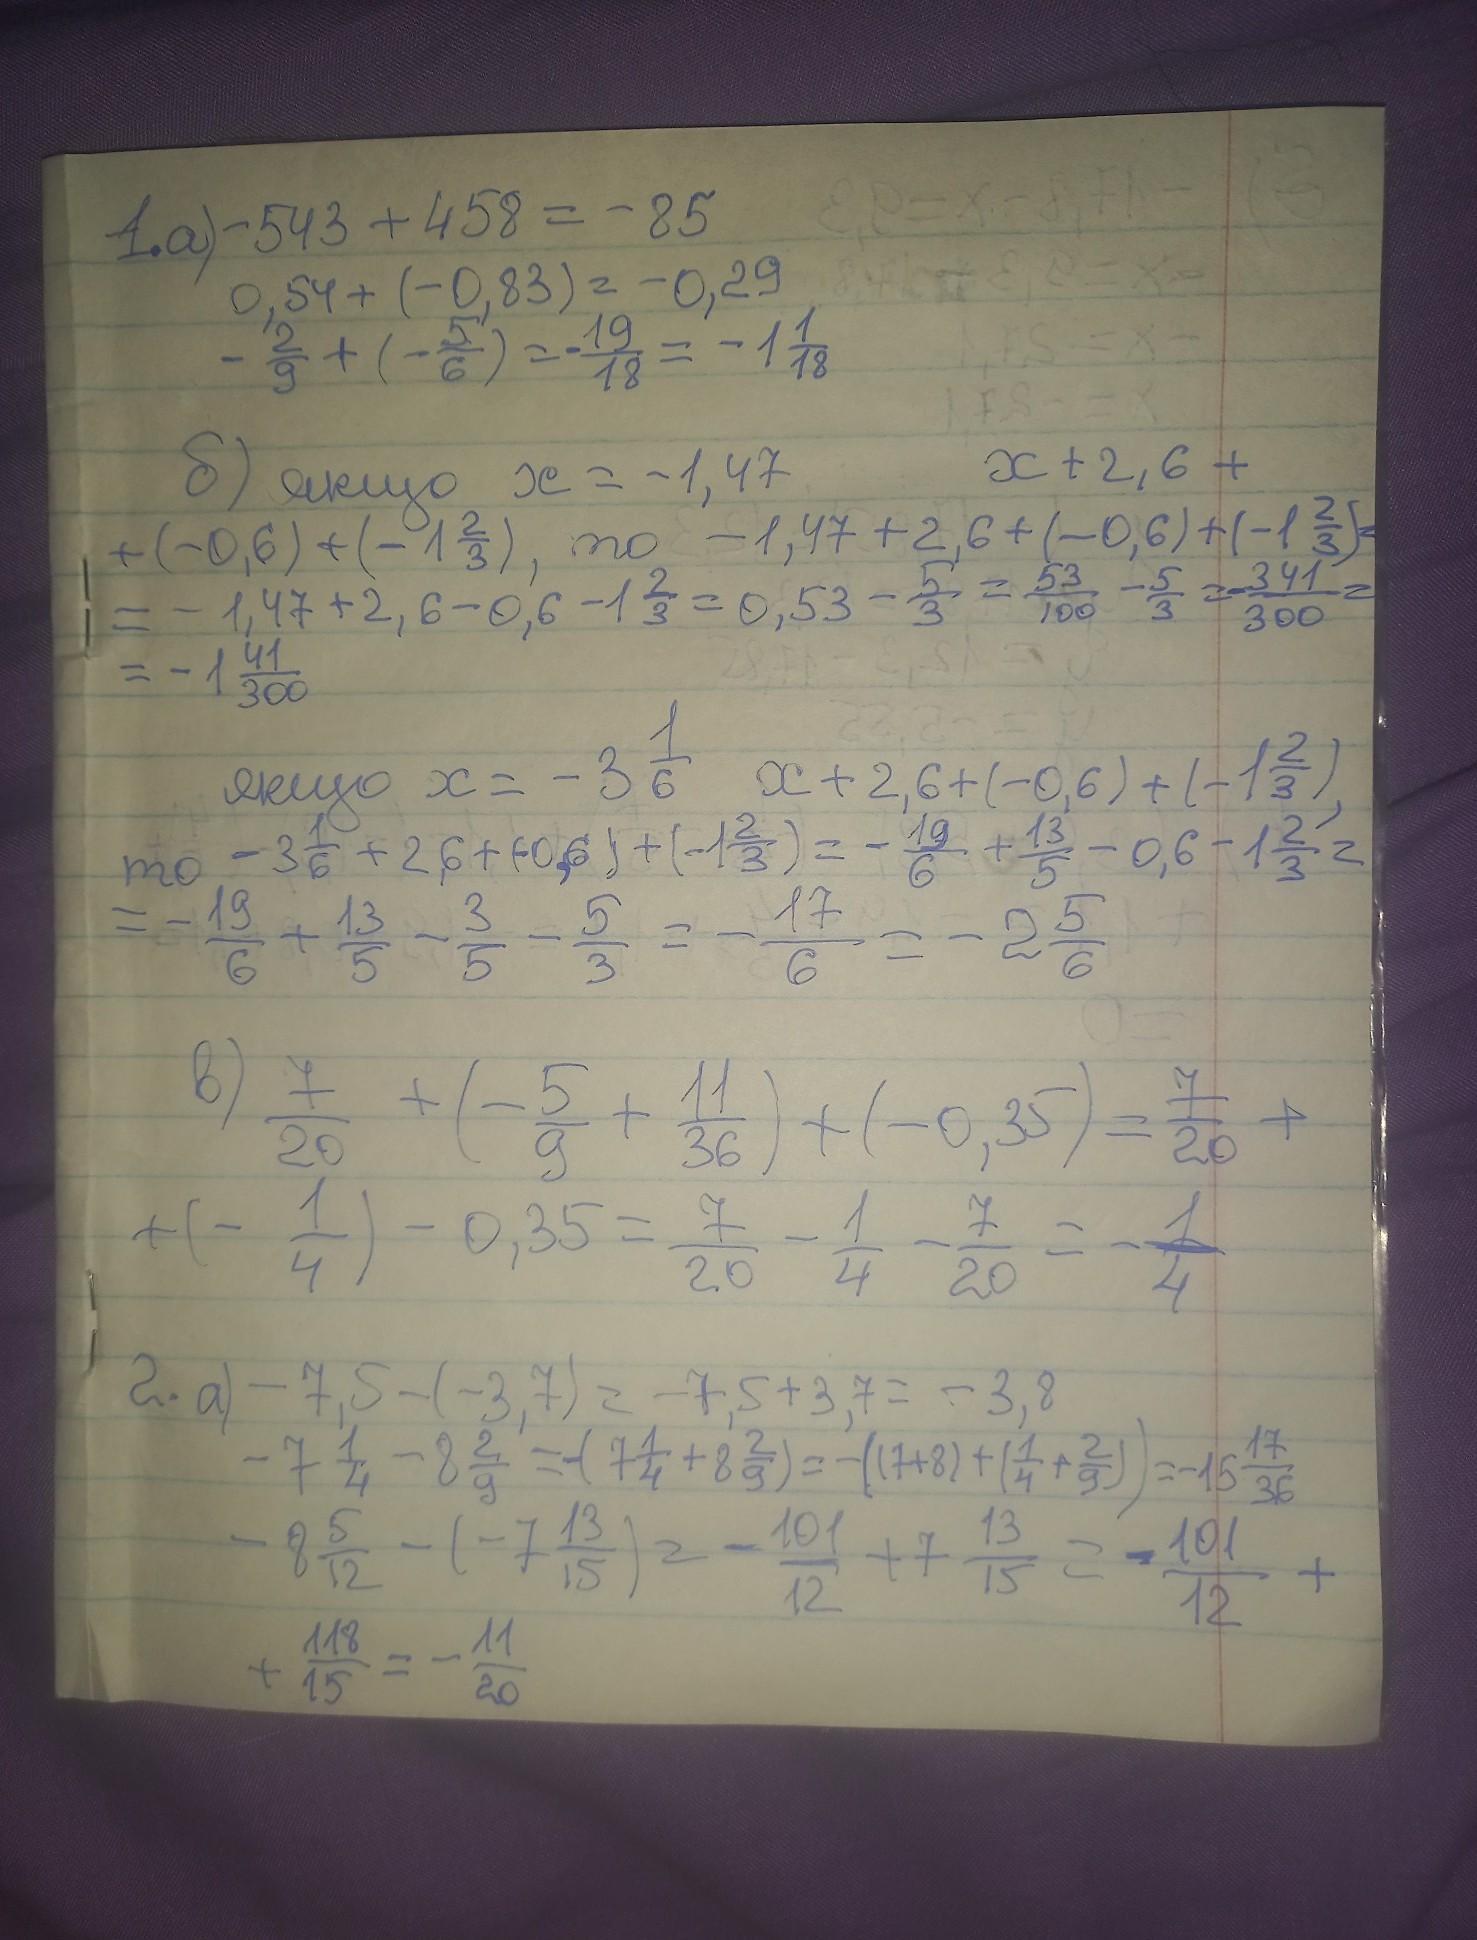 1.а) -543 + 458 = -85
0,54 + (-0,83) = -0,29
- 2/9 + (- 5/6) = - 19/18 = -1 1/18
б) якщо x = -1,47 x + 2,6 +
+ (-0,6) + (-1 2/3), то -1,47 + 2,6 + (-0,6) + (-1 2/3) =
= -1,47 + 2,6 - 0,6 - 1 2/3 = 0,53 - 5/3 = 53/100 - 5/3 = - 341/300 =
= -1 41/300
якщо x = -3 1/6 x + 2,6 + (-0,6) + (-1 2/3),
то -3 1/6 + 2,6 + (-0,6) + (-1 2/3) = - 19/6 + 13/5 - 0,6 - 1 2/3 =
= - 19/6 + 13/5 - 3/5 - 5/3 = - 17/6 = -2 5/6
в) 7/20 + (- 5/9 + 11/36) + (-0,35) = 7/20 +
+ (- 1/4) - 0,35 = 7/20 - 1/4 - 7/20 = - 1/4
2. а) -7,5 - (-3,7) = -7,5 + 3,7 = -3,8
-7 1/4 - 8 2/9 = -(7 1/4 + 8 2/9) = -((7+8) + (1/4 + 2/9)) = -15 17/36
-8 5/12 - (-7 13/15) = - 101/12 + 7 13/15 = - 101/12 +
+ 118/15 = - 11/20